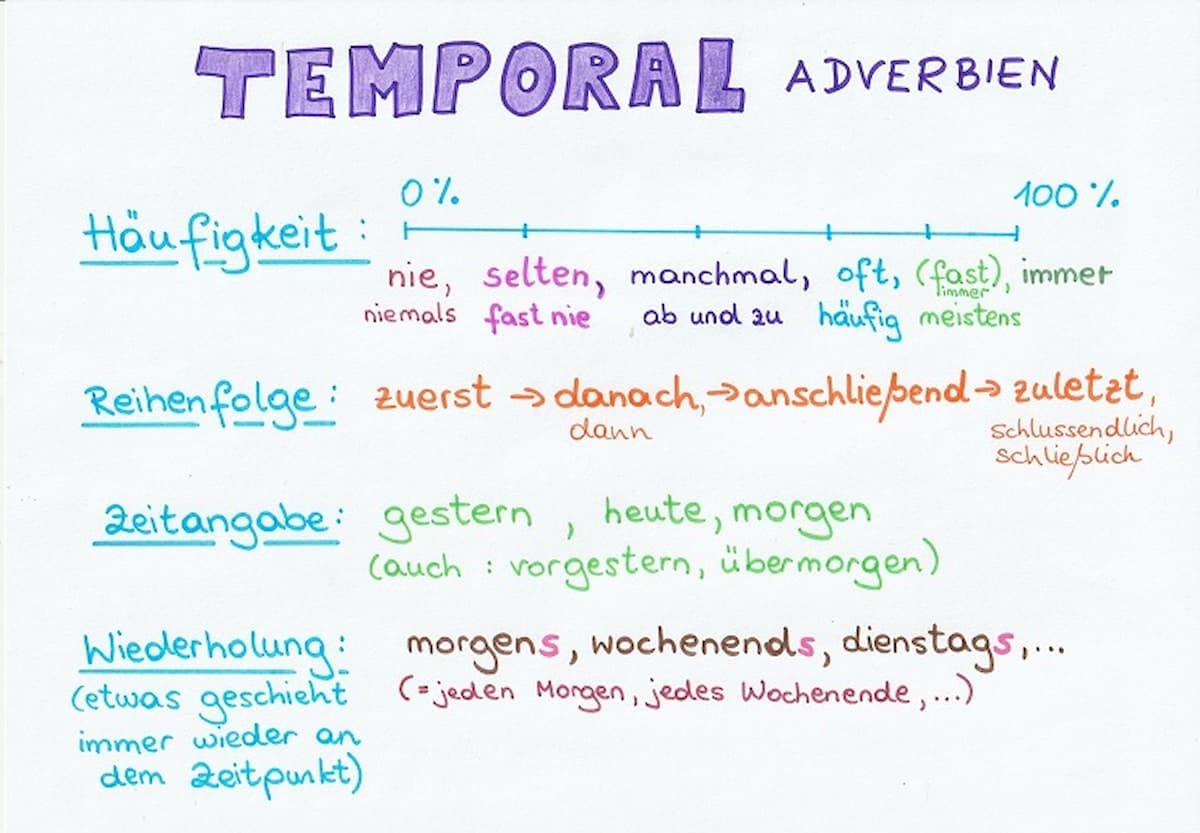 TEMPORAL ADVERBIEN
0% 100%
Häufigkeit: nie, selten, manchmal, oft, (fast), immer
immer
niemals fast nie ab und zu häufig meistens
Reihenfolge: zuerst → danach, → anschließend → zuletzt,
dann schlussendlich,
schließlich
Zeitangabe: gestern, heute, morgen
(auch: vorgestern, übermorgen)
Wiederholung: morgens, wochenends, dienstags,...
(etwas geschieht (=jeden Morgen, jedes Wochenende,...)
immer wieder an
dem Zeitpunkt)